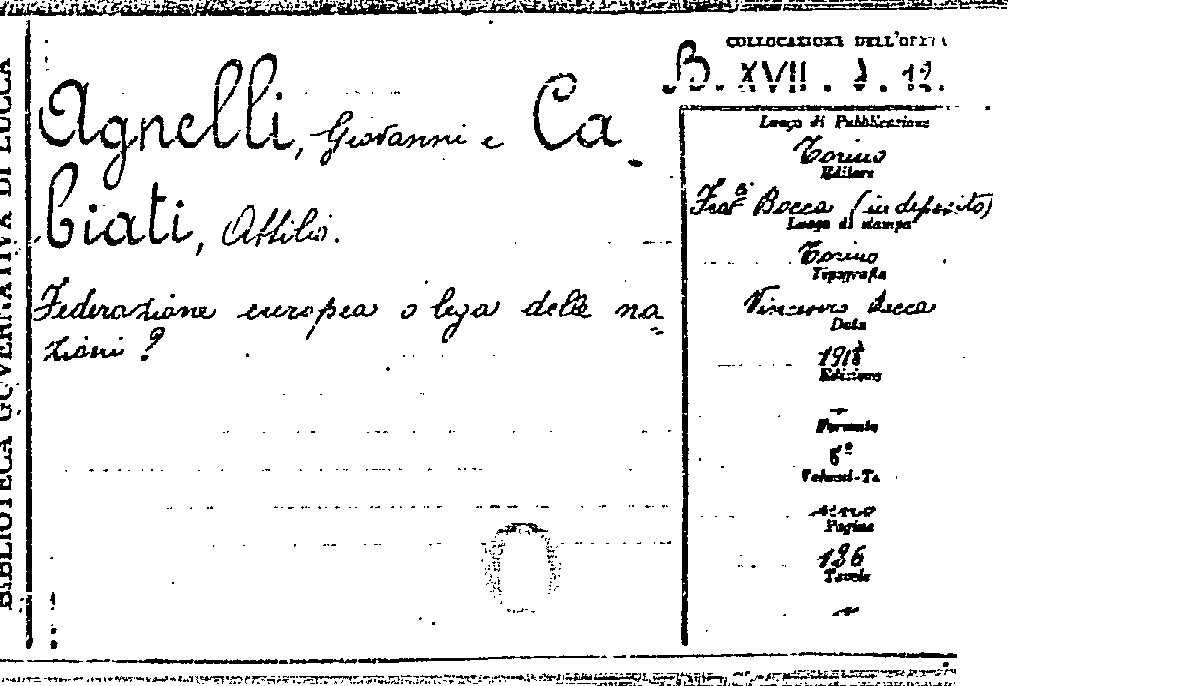 BIBLIOTECA GOVERNATIVA DI LUCCA
Agnelli, Giovanni e Ca-
biati, Attilio.
Federazione europea o lega delle na-
zioni?
COLLOCAZIONE DELL'OPERA
B. XVII. 12.
Luogo di Pubblicazione
Torino
Editore
Frat. Bocca (in deposito)
Luogo di stampa
Torino
Tipografia
Vincenzo Bocca
Data
1918
Edizione
Formato
8°
Volumi-To
Pagine
136
Tavole